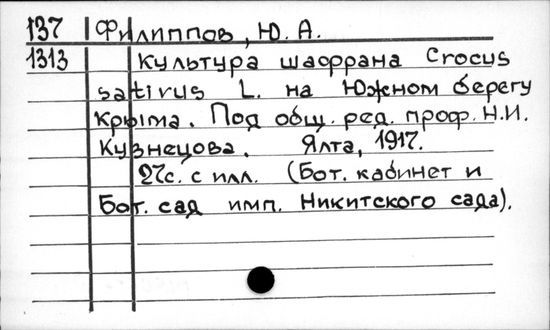 137 Филиппов, Ю. А.
1313 Культура шафрана Crocus
sativus L. на Южном берегу
Крыма. Под общ. ред. проф. Н.И.
Кузнецова. Ялта, 1917.
27с. с илл. (Бот. кабинет и
Бот. сад имп. Никитского сада).